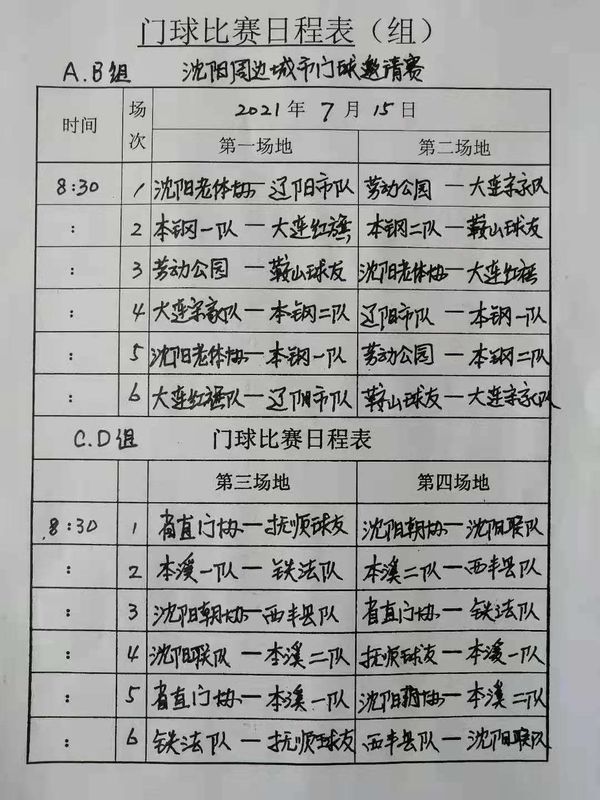 门球比赛日程表（组）
A.B组 沈阳周边城市门球邀请赛
时间 场次 2021年7月15日
第一场地 第二场地
8:30 1 沈阳老体协—辽阳市队 劳动公园—大连宋家队
: 2 本钢一队—大连红旗 本钢二队—鞍山球友
: 3 劳动公园—鞍山球友 沈阳老体协—大连红旗
: 4 大连宋家队—本钢二队 辽阳市队—本钢一队
: 5 沈阳老体协—本钢一队 劳动公园—本钢二队
: 6 大连红旗队—辽阳市队 鞍山球友—大连宋家队
C.D组 门球比赛日程表
第三场地 第四场地
8:30 1 省直门协—抚顺球友 沈阳朝协—沈阳联队
: 2 本溪一队—铁法队 本溪二队—西丰县队
: 3 沈阳朝协—西丰县队 省直门协—铁法队
: 4 沈阳联队—本溪二队 抚顺球友—本溪一队
: 5 省直门协—本溪一队 沈阳朝协—本溪二队
: 6 铁法队—抚顺球友 西丰县队—沈阳联队